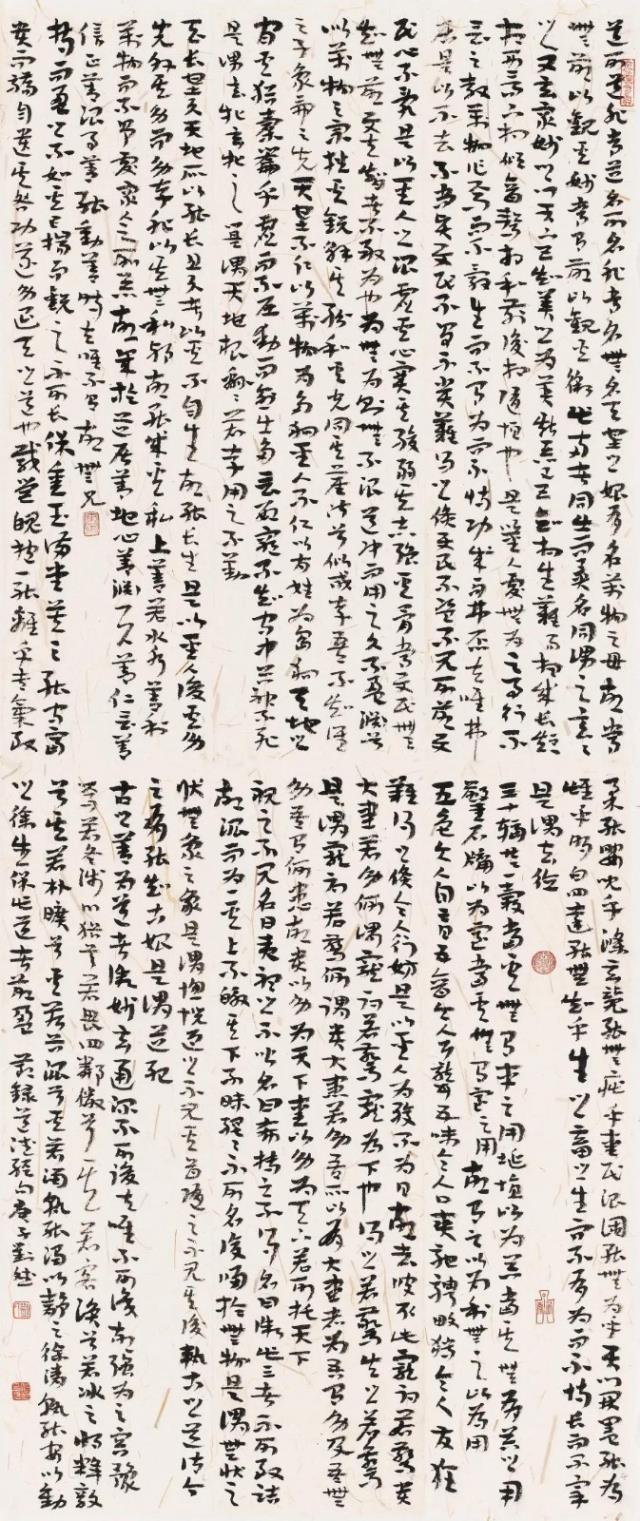 道可道非常道名可名非常名無名天地之始有名萬物之母故常
無欲以觀其妙常有欲以觀其徼此兩者同出而異名同謂之玄玄
之又玄眾妙之門天下皆知美之為美斯惡已有無相生難易相成長短
相形高下相傾音聲相和前後相隨恒也是以聖人處無為之事行不
言之教萬物作焉而不辭生而不有為而不恃功成而弗居夫唯弗
居是以不去不尚賢使民不爭不貴難得之貨使民不為盜不見可欲使
民心不亂是以聖人之治虛其心實其腹弱其志強其骨常使民無
知無欲使夫智者不敢為也為無為則無不治道沖而用之久不盈淵兮
似萬物之宗挫其銳解其紛和其光同其塵湛兮似或存吾不知誰
之子象帝之先天地不仁以萬物為芻狗聖人不仁以百姓為芻狗天地之
間其猶橐籥乎虛而不屈動而愈出多言數窮不如守中谷神不死
是謂玄牝玄牝之門是謂天地根綿綿若存用之不勤
天長地久天地所以能長且久者以其不自生故能長生是以聖人後其身
先外其身而身存非以其無私邪故能成其私上善若水水善利
萬物而不爭處眾人之所惡故幾於道居善地心善淵與善仁言善
信正善治事善能動善時夫唯不爭故無尤
持而盈之不如其已揣而銳之不可長保金玉滿堂莫之能守富
貴而驕自遺其咎功遂身退天之道也載營魄抱一能離乎專氣致
柔能嬰兒乎滌玄覽能無疵乎愛民治國能無為乎天門開闔能為
雌乎明白四達能無知乎生之畜之生而不有為而不恃長而不宰
是謂玄德
三十輻共一轂當其無有車之用埏埴以為器當其無有器之用
鑿戶牖以為室當其無有室之用故有之以為利無之以為用
五色令人目盲五音令人耳聾五味令人口爽馳騁畋獵令人發狂
難得之貨令人行妨是以聖人為腹不為目故去彼取此寵辱若驚貴
大患若身何謂寵辱若驚寵為下也得之若驚失之若驚
是謂寵辱若驚何謂貴大患若身吾所以有大患者為吾有身及吾無
身吾有何患故貴以身為天下愛以身為天下若可托天下
視之不見名曰夷聽之不聞名曰希搏之不得名曰微此三者不可致詰
故混而為一其上不皦其下不昧繩繩不可名復歸於無物是謂無狀之
狀無象之象是謂惚恍迎之不見其首隨之不見其後執古之道以御今
之有能知古始是謂道紀
古之善為道者微妙玄通深不可識夫唯不可識故強為之容豫
兮若冬涉川猶兮若畏四鄰儼兮其若客渙兮若冰之將釋敦
兮其若朴曠兮其若谷混兮其若濁孰能濁以靜之徐清孰能安以動
之徐生保此道者欲盈 節錄道德經句庚子劉